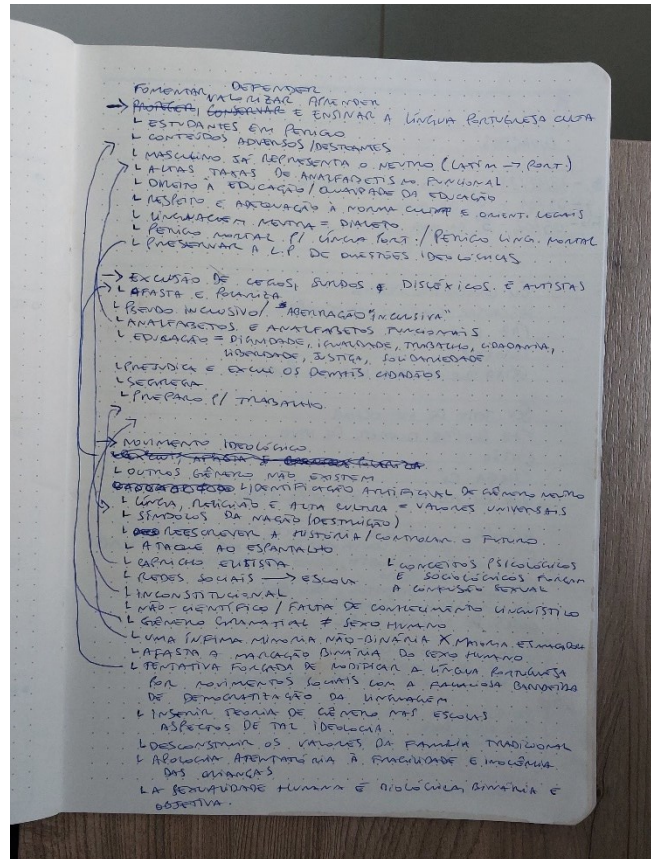 FOMENTAR, DEFENDER
VALORIZAR APRENDER
→ PROTEGER, CONSERVAR E ENSINAR A LÍNGUA PORTUGUESA CULTA
L ESTUDANTES EM PERIGO
L CONTEÚDOS ADVERSOS/DESTOANTES
L MASCULINO JÁ REPRESENTA O NEUTRO (LATIM → PORT)
L ALTAS TAXAS DE ANALFABETISMO FUNCIONAL
L DIREITO À EDUCAÇÃO/QUALIDADE DA EDUCAÇÃO
L RESPEITO E ADEQUAÇÃO À NORMA CULTA E ORIENT. LEGAIS
L LINGUAGEM NEUTRA = DIALETO
L PERIGO MORTAL P/ LÍNGUA PORT. / PERIGO LING. MORTAL
L PRESERVAR A L.P. DE QUESTÕES IDEOLÓGICAS
→ EXCLUSÃO DE CEGOS, SURDOS E DISLÉXICOS. E AUTISTAS
L AFASTA E POLARIZA
L PSEUDO INCLUSIVO/ "ABERRAÇÃO "INCLUSIVA"
L ANALFABETOS E ANALFABETOS FUNCIONAIS
L EDUCAÇÃO = DIGNIDADE, IGUALDADE, TRABALHO, CIDADANIA,
LIBERDADE, JUSTIÇA, SOLIDARIEDADE
L PREJUDICA E EXCLUI OS DEMAIS CIDADÃOS
L SEGREGA
L PREPARO P/ TRABALHO
→ MOVIMENTO IDEOLÓGICO
L EXCLUI, AFASTA E POLARIZA
L OUTROS GÊNERO NÃO EXISTEM
L IDENTIFICAÇÃO ARTIFICIAL DE GÊNERO NEUTRO
L LÍNGUA, RELIGIÃO E ALTA CULTURA = VALORES UNIVERSAIS
L SÍMBOLOS DA NAÇÃO (DESTRUIÇÃO)
L REESCREVER A HISTÓRIA/CONTROLAR O FUTURO.
L ATAQUE AO ESPANTALHO
L CAPRICHO ELITISTA
L CONCEITOS PSICOLÓGICOS
L REDES SOCIAIS → ESCOLA
E SOCIOLÓGICOS FORÇAM
L INCONSTITUCIONAL
A CONFUSÃO SEXUAL
L NÃO-CIENTÍFICO / FALTA DE CONHECIMENTO LINGUÍSTICO
L GÊNERO GRAMATICAL ≠ SEXO HUMANO
L UMA ÍNFIMA MINORIA NÃO-BINÁRIA X MAIORIA ESMAGADORA
L AFASTA A MARCAÇÃO BINÁRIA DO SEXO HUMANO
L TENTATIVA FORÇADA DE MODIFICAR A LÍNGUA PORTUGUESA
POR MOVIMENTOS SOCIAIS COM A FALACIOSA BANDEIRA
DE DEMOCRATIZAÇÃO DA LINGUAGEM
L INSERIR TEORIA DE GÊNERO NAS ESCOLAS
ASPECTOS DE TAL IDEOLOGIA.
L DESCONSTRUIR OS VALORES DA FAMÍLIA TRADICIONAL
L APOLOGIA ATENTATÓRIA À FRAGILIDADE E INOCÊNCIA
DAS CRIANÇAS
L A SEXUALIDADE HUMANA É BIOLÓGICA, BINÁRIA E
OBJETIVA.